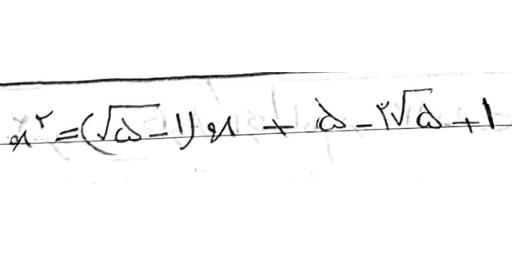 x² = (√۵ - ۱) x + ۵ - ۲√۵ + ۱